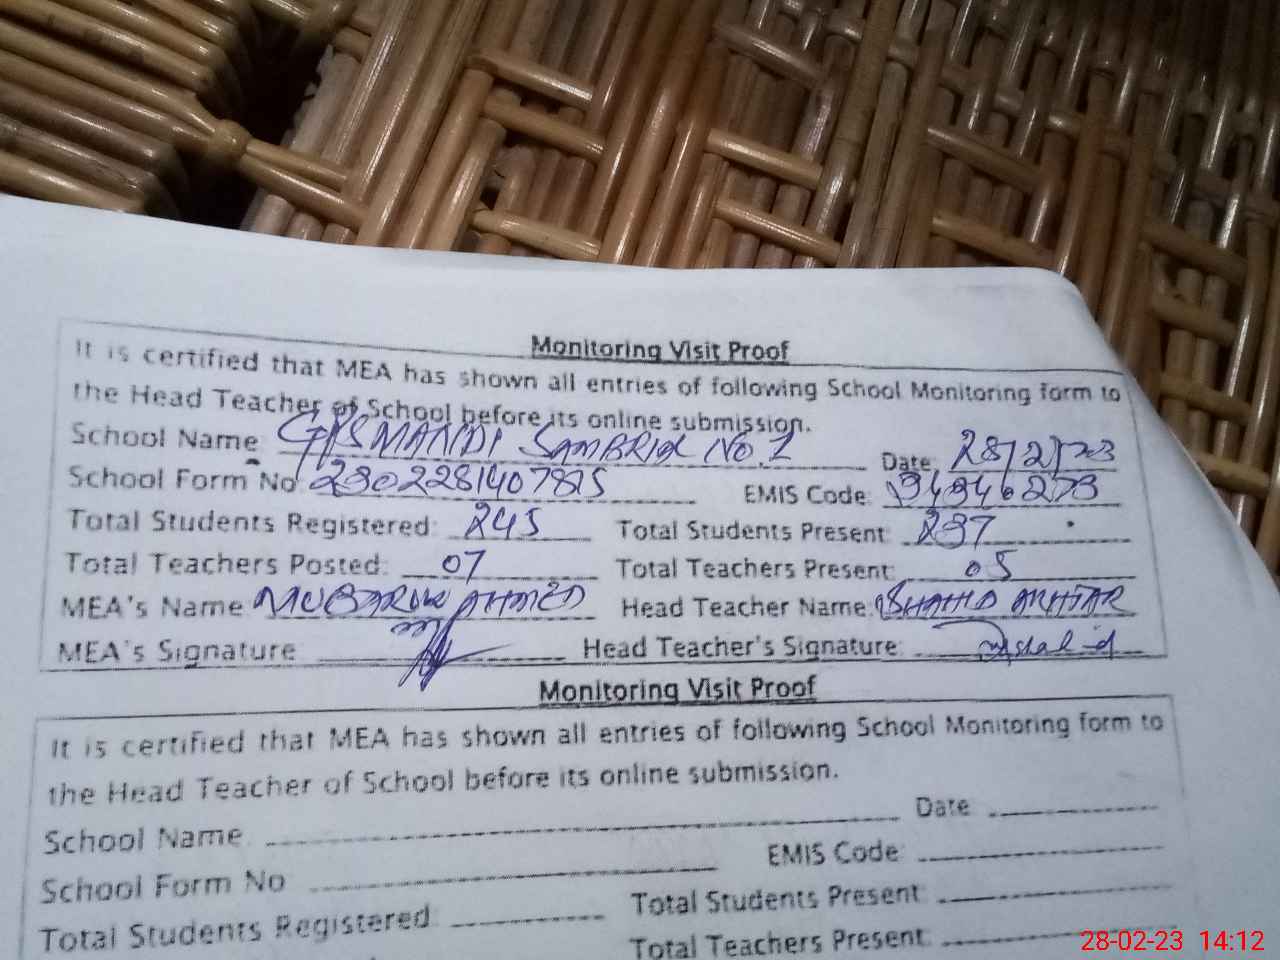 Monitoring Visit Proof
It is certified that MEA has shown all entries of following School Monitoring form to
the Head Teacher of School before its online submission.
School Name GPS MANDI SAMBRIAL No. 1 Date: 28/2/23
School Form No 23022814078 EMIS Code: 34346273
Total Students Registered: 245 Total Students Present: 237
Total Teachers Posted: 07 Total Teachers Present: 05
MEA's Name: MUBARUK AHMED Head Teacher Name: SHAHID AKHTAR
MEA's Signature Head Teacher's Signature:
Monitoring Visit Proof
It is certified that MEA has shown all entries of following School Monitoring form to
the Head Teacher of School before its online submission.
School Name Date
School Form No EMIS Code:
Total Students Registered: Total Students Present:
Total Teachers Present:
28-02-23 14:12